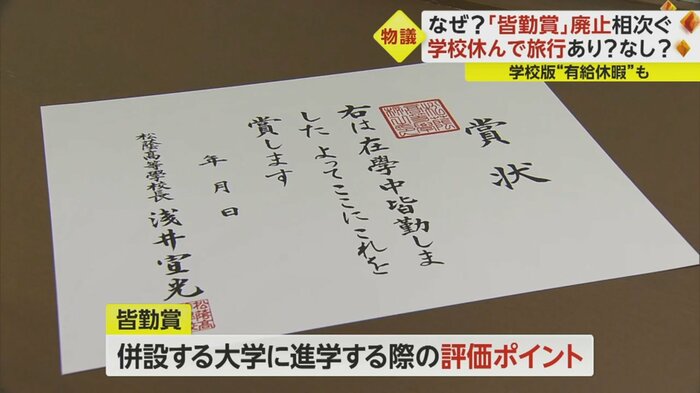 物議
なぜ?「皆勤賞」廃止相次ぐ
学校休んで旅行あり?なし?
学校版“有給休暇”も
賞状
右は在學中皆勤しま
した よってここにこれを
賞します
年 月 日
松蔭高等學校長 浅井宣光
皆勤賞
併設する大学に進学する際の評価ポイント